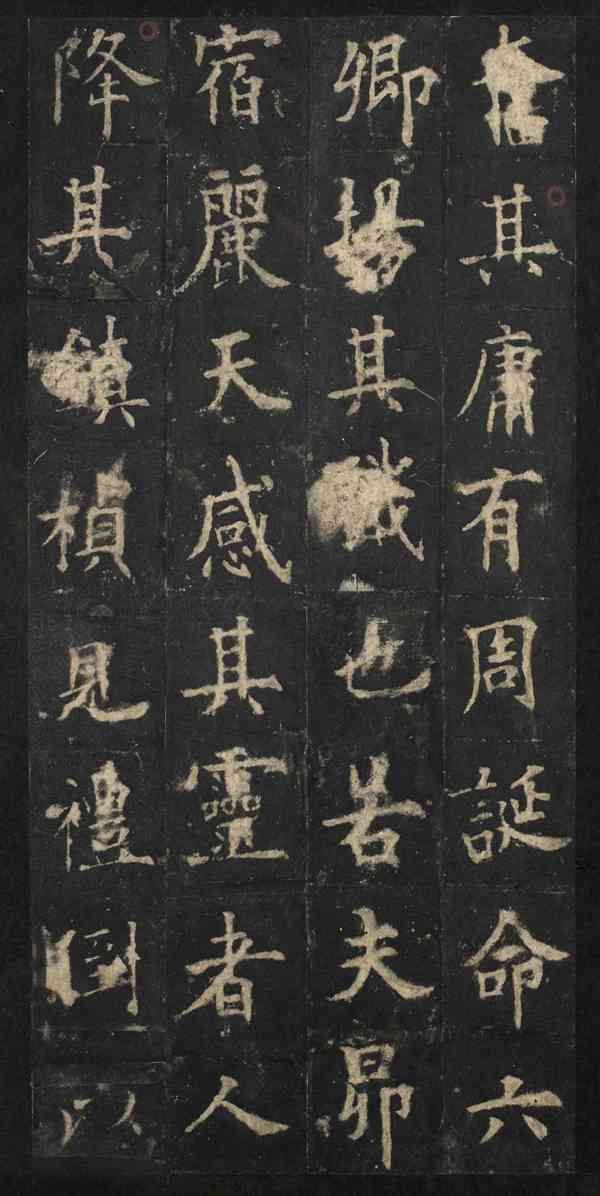 其庸有周誕命六
卿揚其職也若夫昴
宿麗天感其靈者人
降其鎮楨見禮以